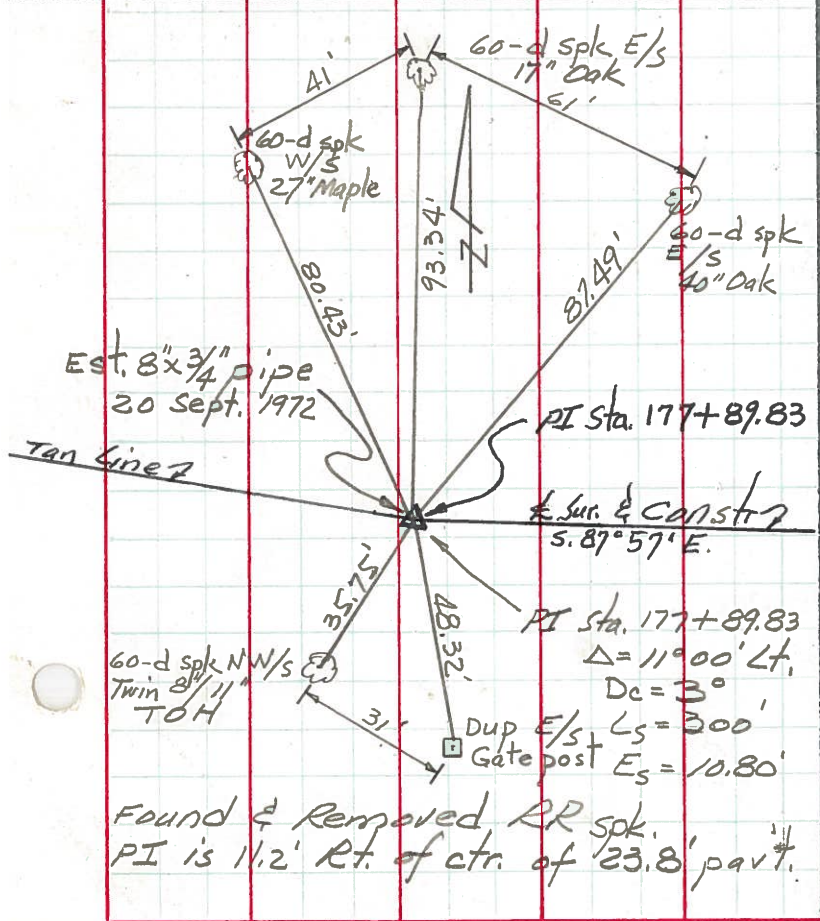 41'
60-d spk E/S
17" Oak
61'
60-d spk
W/S
27" Maple
93.34'
N
60-d spk
E/S
40" Oak
80.43'
87.49'
Est. 8" x 3/4" pipe
20 Sept. 1972
PI Sta. 177+89.83
Tan Line
℄ Sur. & Constr
S. 87° 57' E.
35.75'
48.32'
PI Sta. 177+89.83
Δ = 11° 00' Lt.
Dc = 3°
Ls = 300'
Es = 10.80'
60-d spk NW/S
Twin 8"/11"
TOH
31'
Dup E/S
Gate post
Found & Removed RR spk.
PI is 11.2' Rt. of ctr. of 23.8' pav't.